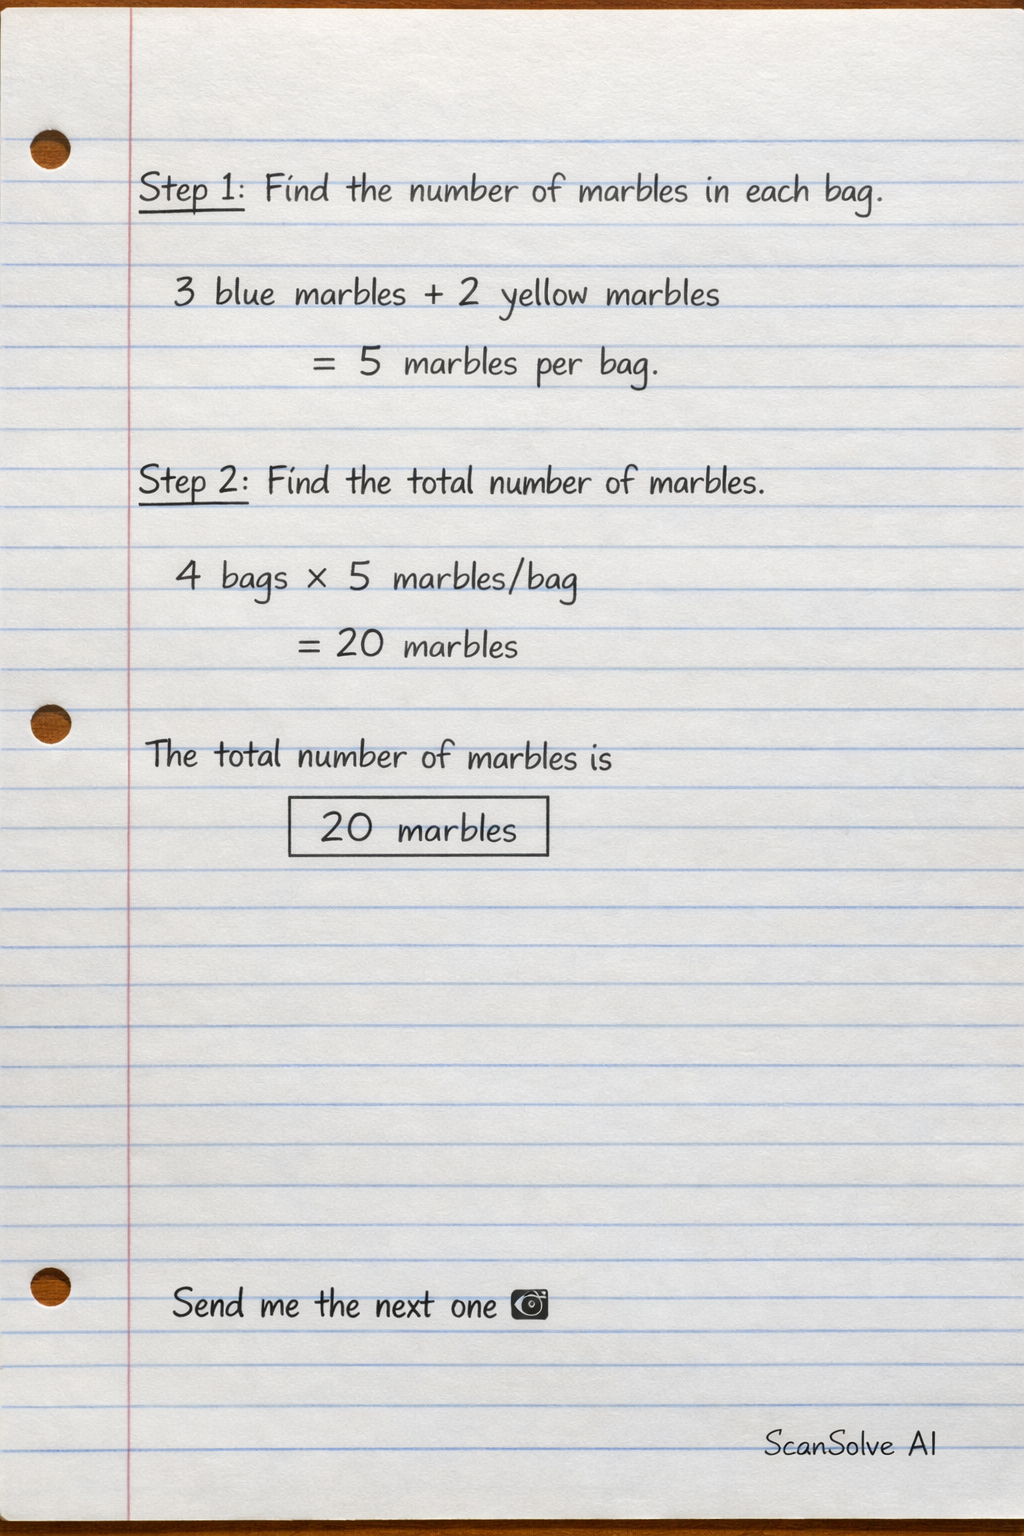 Step 1: Find the number of marbles in each bag.
3 blue marbles + 2 yellow marbles
= 5 marbles per bag.
Step 2: Find the total number of marbles.
4 bags × 5 marbles/bag
= 20 marbles
The total number of marbles is
20 marbles
Send me the next one 📷
ScanSolve AI